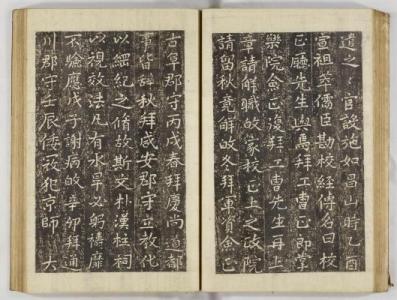 道之 官設施如昌山時乙酉
宣祖萃儒臣勘校經傳名曰校
正廳先生與焉拜工曹正郎掌
樂院僉正復拜工曹先生再上
章請解職敀家校正上之政院
請留秋竟解敀冬拜軍資僉正
古阜郡守丙戌春拜慶尚道都
事皆辞秋拜咸安郡守立敎化
以綱紀之脩故斯文朴漢柱祠
以視效法凡有水旱必躬禱靡
不驗應戊子謝病敀辛卯拜通
川郡守壬辰倭寇犯京師 大